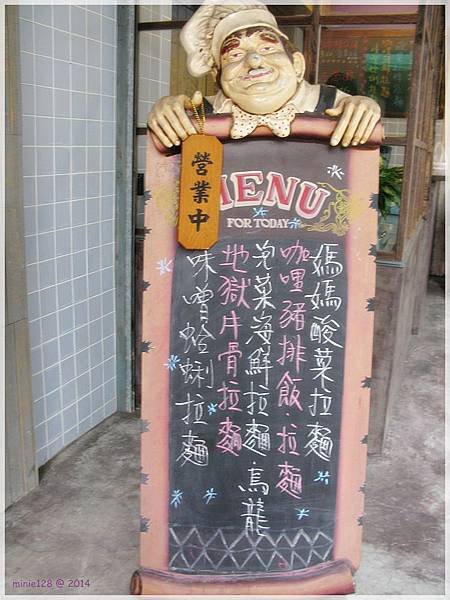 營業中
MENU
FOR TODAY
媽媽酸菜拉麵
咖哩豬排飯.拉麵
泡菜海鮮拉麵.烏龍
地獄牛骨拉麵
味噌蛤蜊拉麵
minie128 @ 2014